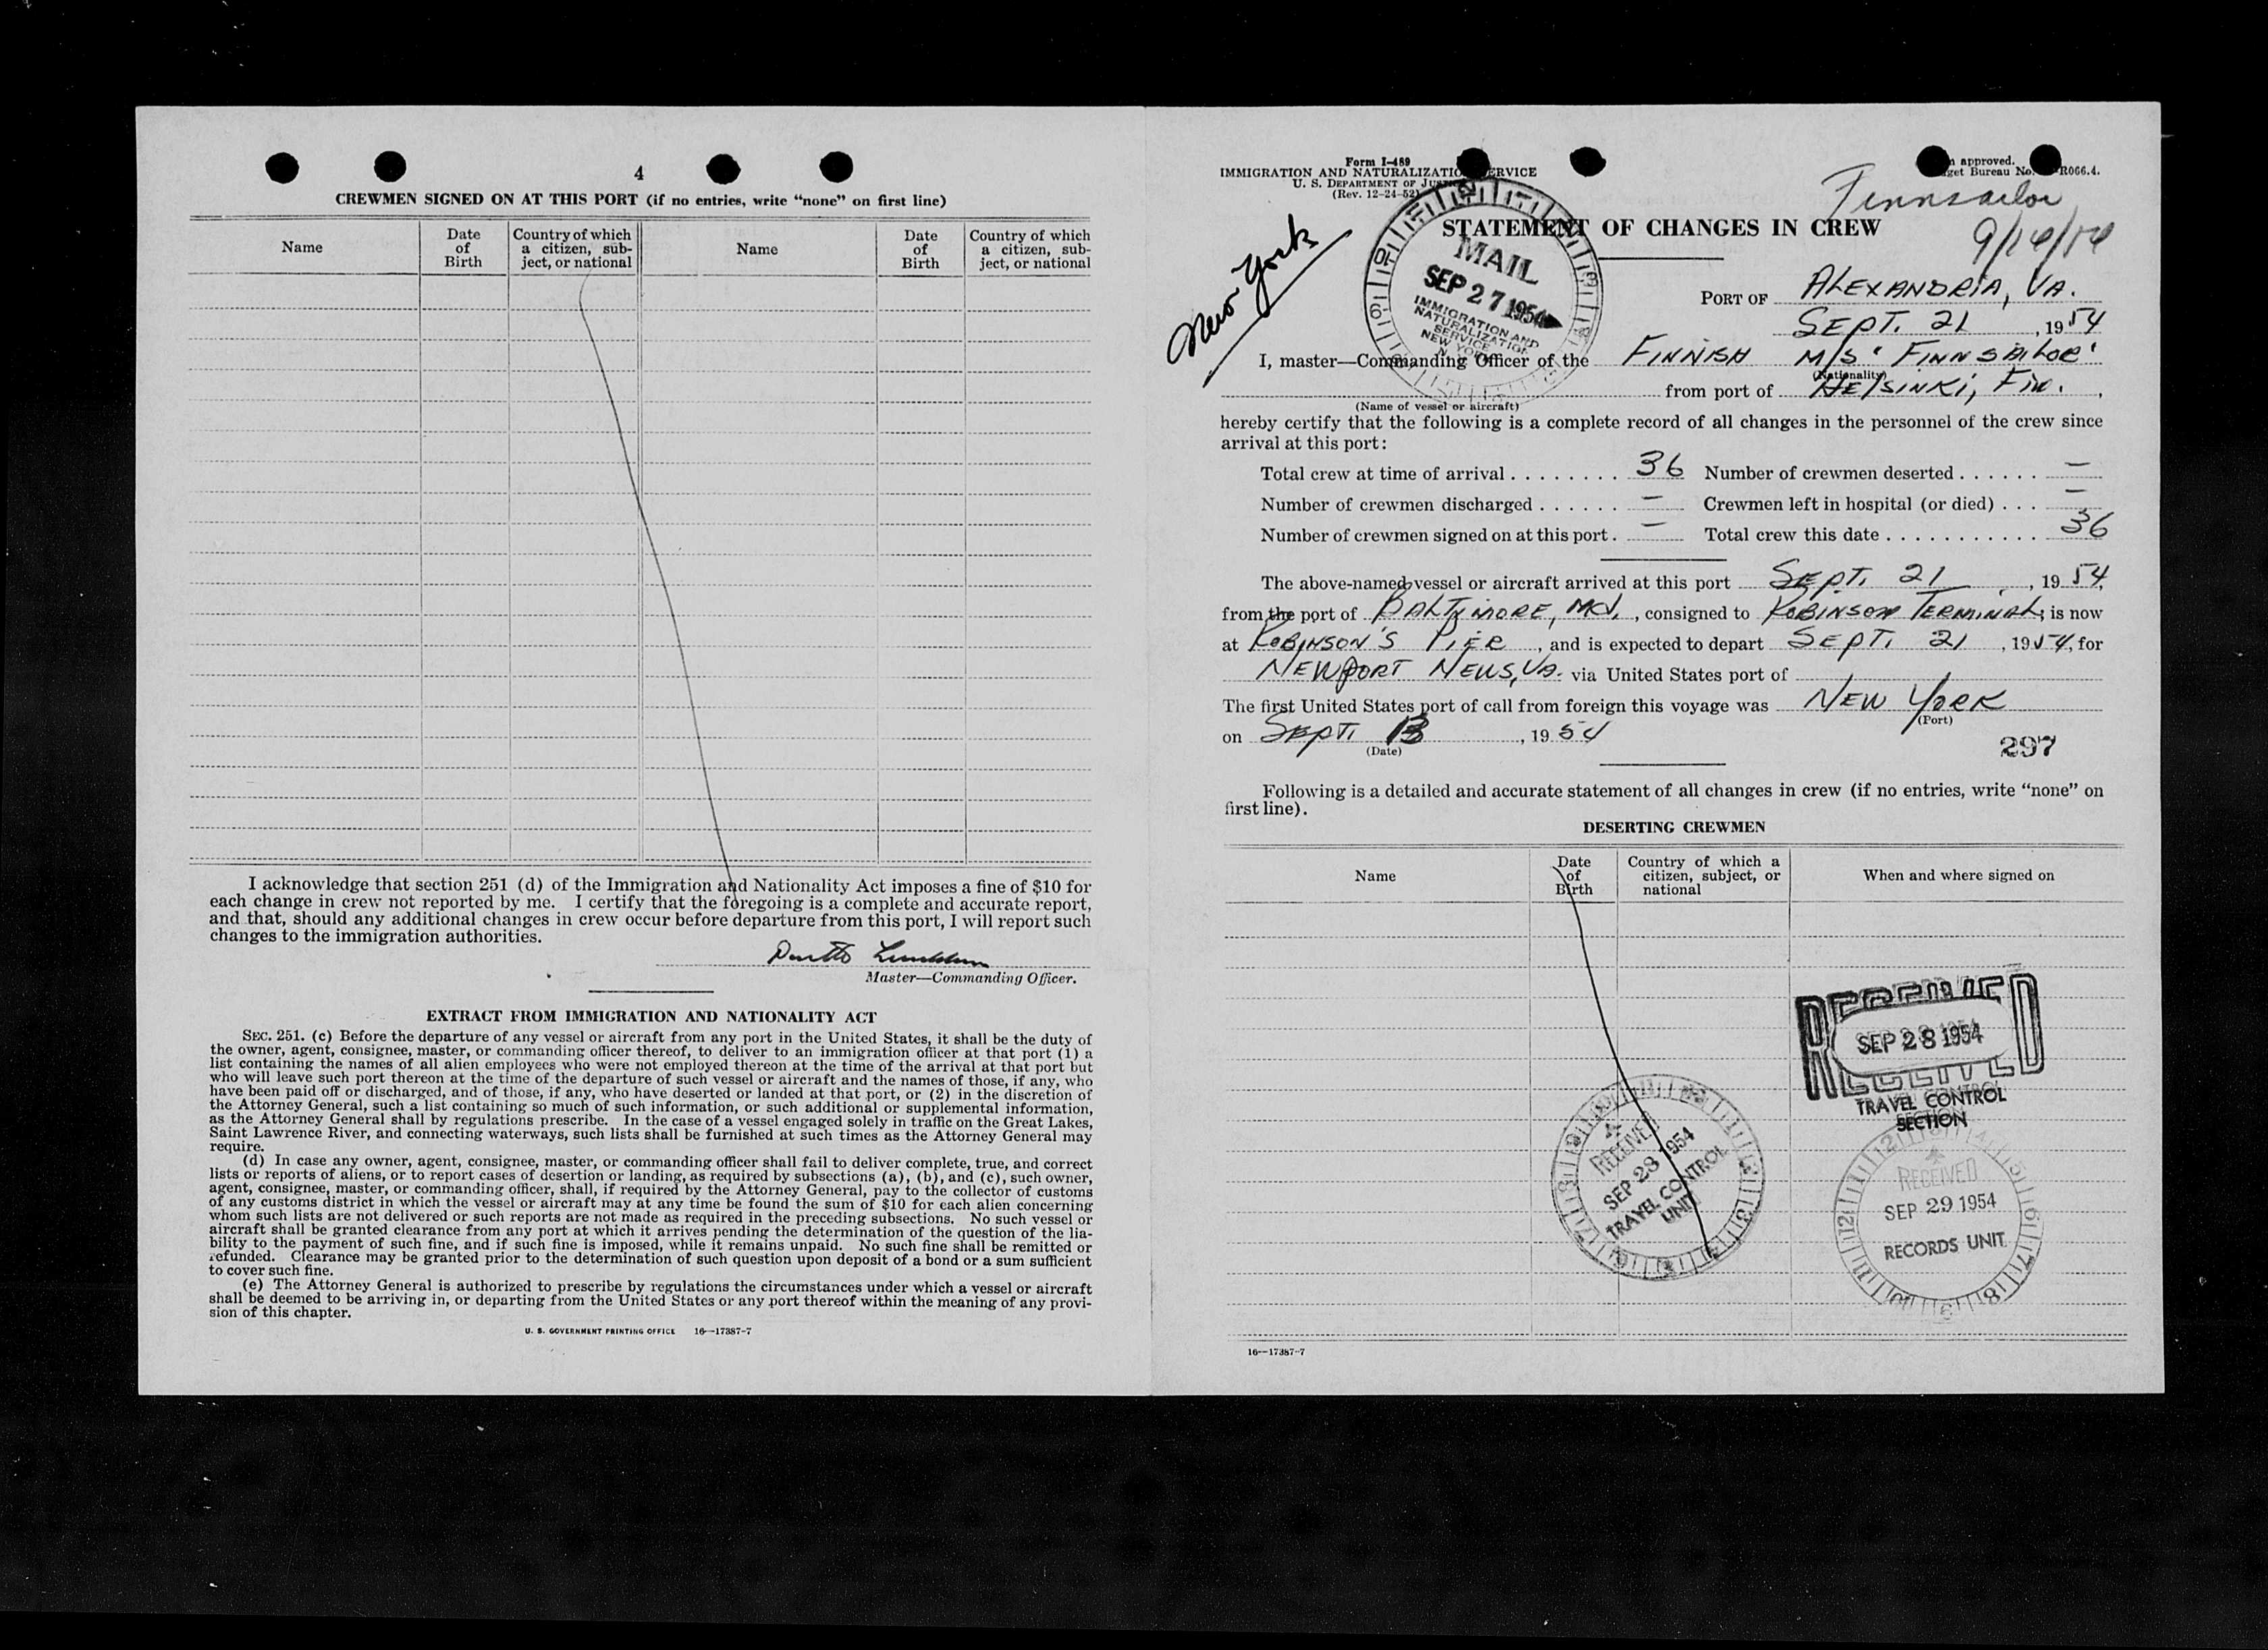 4
CREWMEN SIGNED ON AT THIS PORT (if no entries, write “none” on first line)
Name
Date of Birth
Country of which a citizen, sub-
ject, or national
Name
Date of Birth
Country of which a citizen, sub-
ject, or national
I acknowledge that section 251 (d) of the Immigration and Nationality Act imposes a fine of $10 for
each change in crew not reported by me. I certify that the foregoing is a complete and accurate report,
and that, should any additional changes in crew occur before departure from this port, I will report such
changes to the immigration authorities.
Master—Commanding Officer.
EXTRACT FROM IMMIGRATION AND NATIONALITY ACT
SEC. 251. (c) Before the departure of any vessel or aircraft from any port in the United States, it shall be the duty of
the owner, agent, consignee, master, or commanding officer thereof, to deliver to an immigration officer at that port (1) a
list containing the names of all alien employees who were not employed thereon at the time of the arrival at that port but
who will leave such port thereon at the time of the departure of such vessel or aircraft and the names of those, if any, who
have been paid off or discharged, and of those, if any, who have deserted or landed at that port, or (2) in the discretion of
the Attorney General, such a list containing so much of such information, or such additional or supplemental information,
as the Attorney General shall by regulations prescribe. In the case of a vessel engaged solely in traffic on the Great Lakes,
Saint Lawrence River, and connecting waterways, such lists shall be furnished at such times as the Attorney General may
require.
(d) In case any owner, agent, consignee, master, or commanding officer shall fail to deliver complete, true, and correct
lists or reports of aliens, or to report cases of desertion or landing, as required by subsections (a), (b), and (c), such owner,
agent, consignee, master, or commanding officer, shall, if required by the Attorney General, pay to the collector of customs
of any customs district in which the vessel or aircraft may at any time be found the sum of $10 for each alien concerning
whom such lists are not delivered or such reports are not made as required in the preceding subsections. No such vessel or
aircraft shall be granted clearance from any port at which it arrives pending the determination of the question of the lia-
bility to the payment of such fine, and if such fine is imposed, while it remains unpaid. No such fine shall be remitted or
refunded. Clearance may be granted prior to the determination of such question upon deposit of a bond or a sum sufficient
to cover such fine.
(e) The Attorney General is authorized to prescribe by regulations the circumstances under which a vessel or aircraft
shall be deemed to be arriving in, or departing from the United States or any port thereof within the meaning of any provi-
sion of this chapter.
U. S. GOVERNMENT PRINTING OFFICE 16—17387-7
Form I-489
IMMIGRATION AND NATURALIZATION SERVICE
U. S. DEPARTMENT OF JUSTICE
(Rev. 12-24-52)
approved.
get Bureau No. R066.4.
Finnsailor
New York
STATEMENT OF CHANGES IN CREW
MAIL
SEP 27 1954
IMMIGRATION AND
NATURALIZATION
SERVICE
NEW YORK
PORT OF ALEXANDRIA, VA.
SEPT. 21, 1954
I, master—Commanding Officer of the FINNISH M/S "FINNSAILOR"
(Nationality)
from port of HELSINKI, FIN.,
(Name of vessel or aircraft)
hereby certify that the following is a complete record of all changes in the personnel of the crew since
arrival at this port:
Total crew at time of arrival 36 Number of crewmen deserted —
Number of crewmen discharged — Crewmen left in hospital (or died) —
Number of crewmen signed on at this port — Total crew this date 36
The above-named vessel or aircraft arrived at this port SEPT. 21, 1954,
from the port of BALTIMORE, MD., consigned to ROBINSON TERMINAL; is now
at ROBINSON'S PIER, and is expected to depart SEPT. 21, 1954, for
NEWPORT NEWS, VA. via United States port of
The first United States port of call from foreign this voyage was NEW YORK
(Port)
on SEPT. 13, 1954
(Date)
297
Following is a detailed and accurate statement of all changes in crew (if no entries, write “none” on
first line).
DESERTING CREWMEN
Name
Date of Birth
Country of which a citizen, subject, or national
When and where signed on
RECEIVED
SEP 28 1954
TRAVEL CONTROL
SECTION
RECEIVED
SEP 28 1954
TRAVEL CONTROL
UNIT
RECEIVED
SEP 29 1954
RECORDS UNIT
16—17387-7